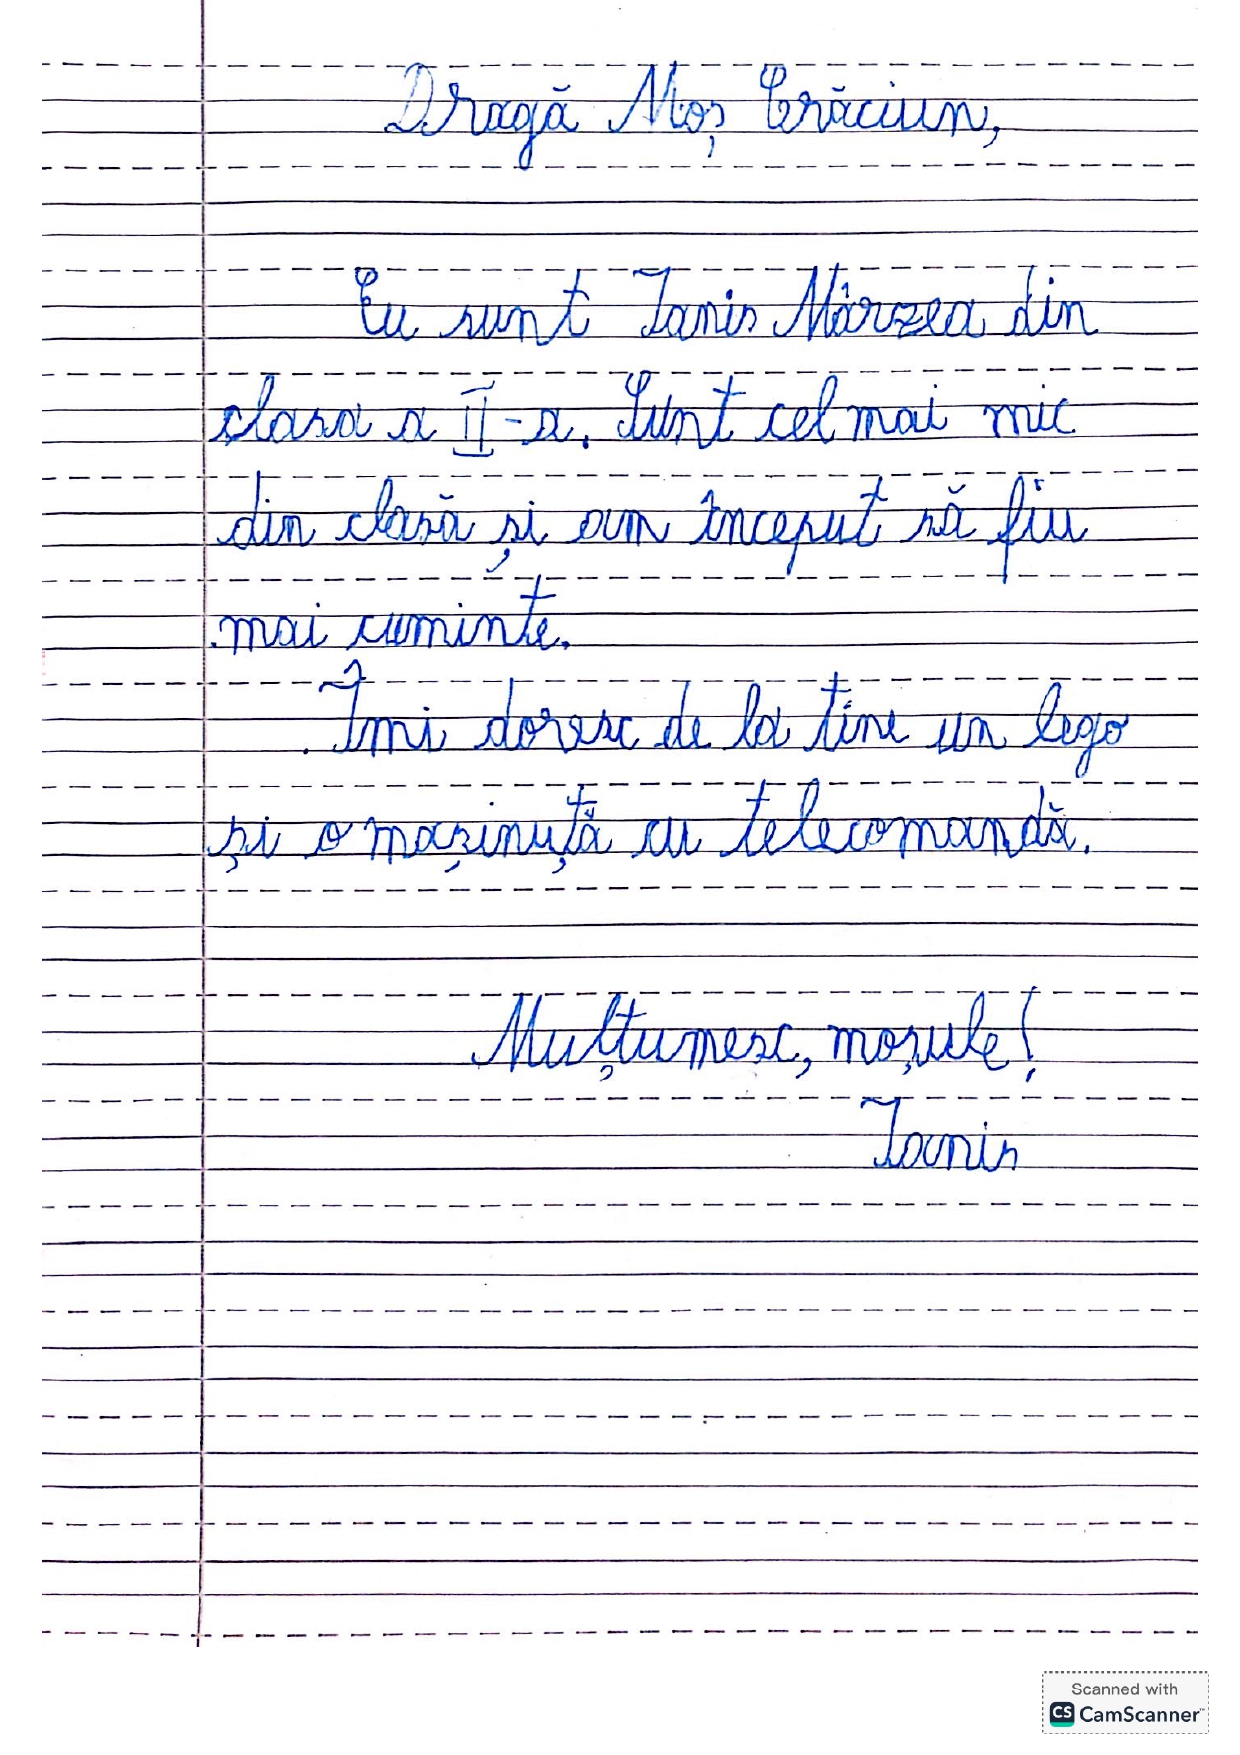 Dragă Moș Crăciun,
Eu sunt Ianis Mârzea din
clasa a II-a. Sunt cel mai mic
din clasă și am început să fiu
mai cuminte.
Îmi doresc de la tine un lego
și o mașinuță cu telecomandă.
Mulțumesc, moșule!
Ianis
Scanned with
CS CamScanner